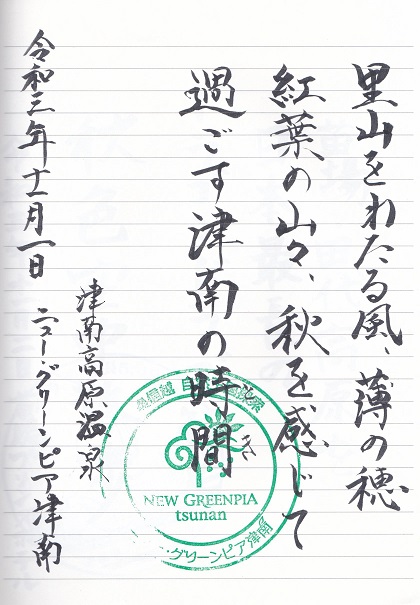 里山をわたる風、薄の穂
紅葉の山々、秋を感じて
過ごす津南の時間
津南高原温泉
ニュー・グリーンピア津南
令和三年十一月一日
NEW GREENPIA
tsunan
・グリーンピア津南